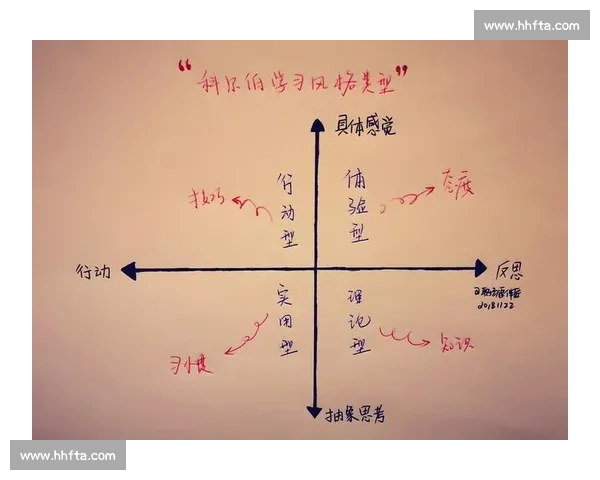 www.hhfta.com
“科尔伯学习风格类型”
具体感觉
行动型
体验型
技巧
态度
行动
反思
20181122
实用型
理论型
习惯
知识
抽象思考
www.hhfta.com